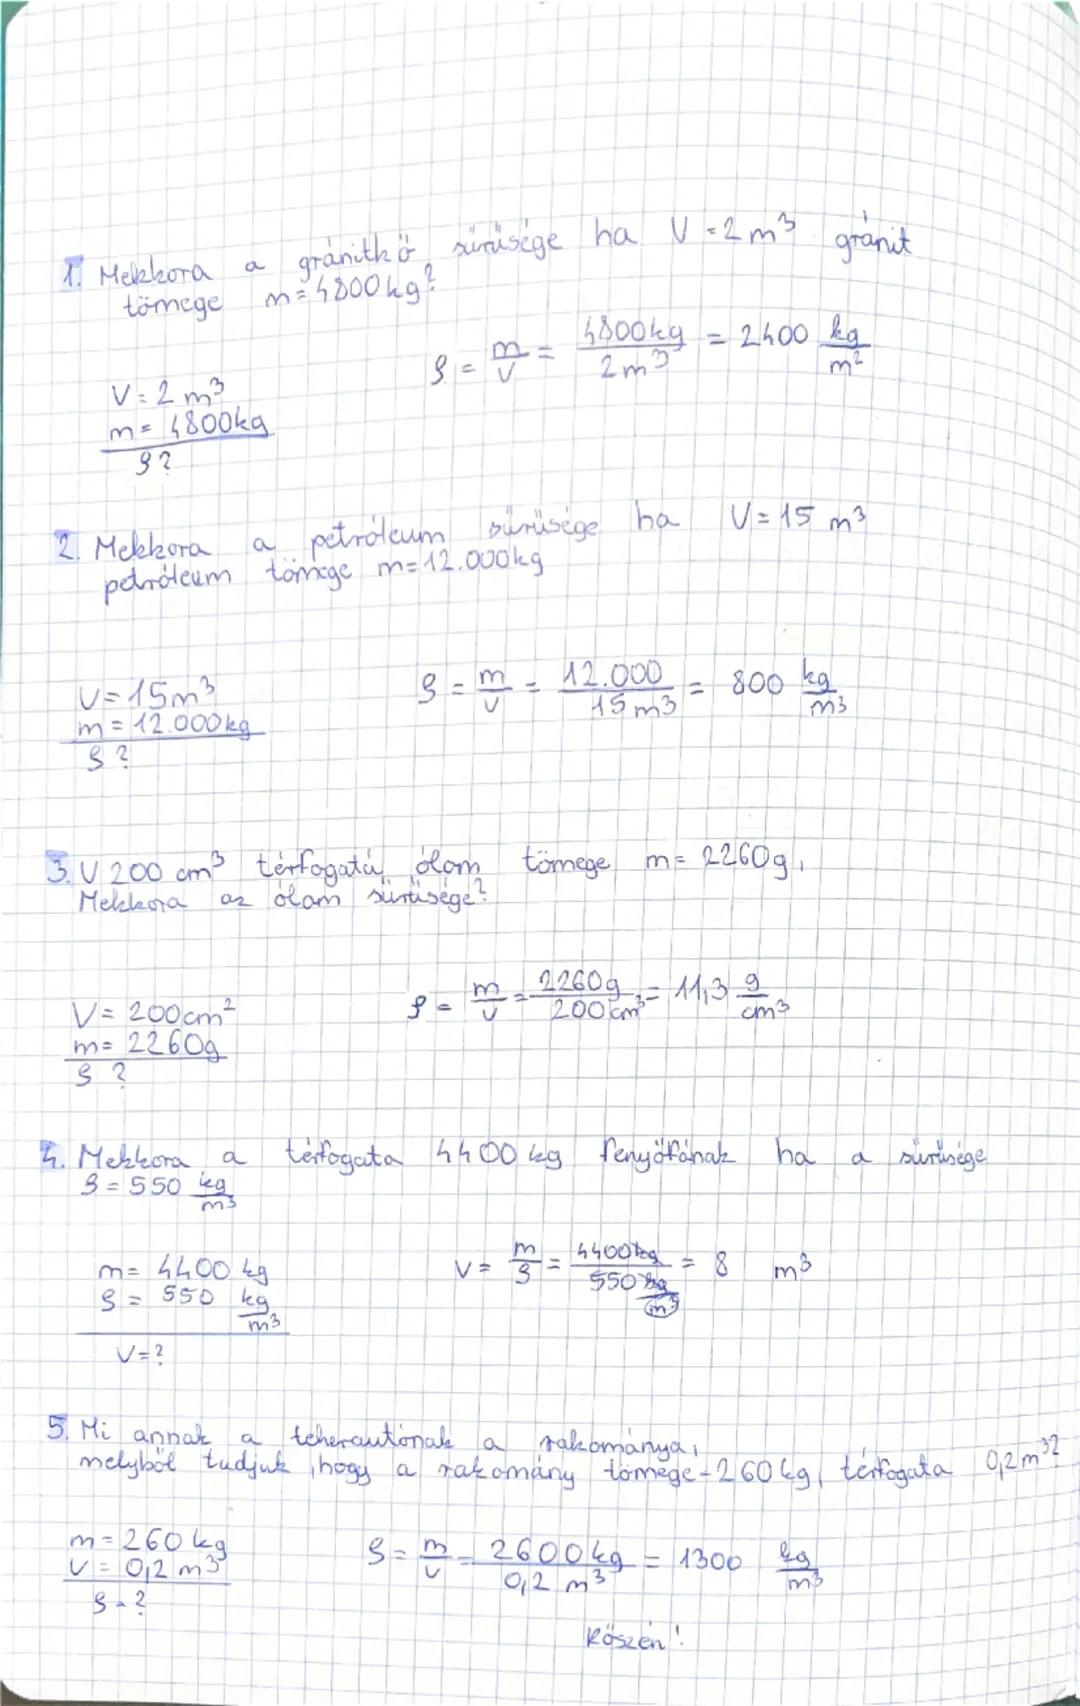 1. Mekkora a gránitkő sűrűsége ha V = 2 m³ gránit
tömege m = 4800 kg?
V = 2 m³
m = 4800 kg
ρ ?
ρ = m/V = 4800 kg / 2 m³ = 2400 kg/m²
2. Mekkora a petróleum sűrűsége ha V = 15 m³
petróleum tömege m = 12.000 kg
V = 15 m³
m = 12.000 kg
ρ ?
ρ = m/V = 12.000 / 15 m³ = 800 kg/m³
3. V 200 cm³ térfogatú ólom tömege m = 2260 g,
Mekkora az ólam sűrűsége?
V = 200 cm²
m = 2260 g
ρ ?
ρ = m/V = 2260 g / 200 cm³ = 11,3 g/cm³
4. Mekkora a térfogata 4400 kg fenyőfának ha a sűrűsége
ρ = 550 kg/m³
m = 4400 kg
ρ = 550 kg/m³
V = ?
V = m/ρ = 4400 kg / 550 kg/m³ = 8 m³
5. Mi annak a teherautónak a rakománya,
melyből tudjuk, hogy a rakomány tömege - 260 kg, térfogata 0,2 m³?
m = 260 kg
V = 0,2 m³
ρ = ?
ρ = m/V = 2600 kg / 0,2 m³ = 1300 kg/m³
Kőszén!